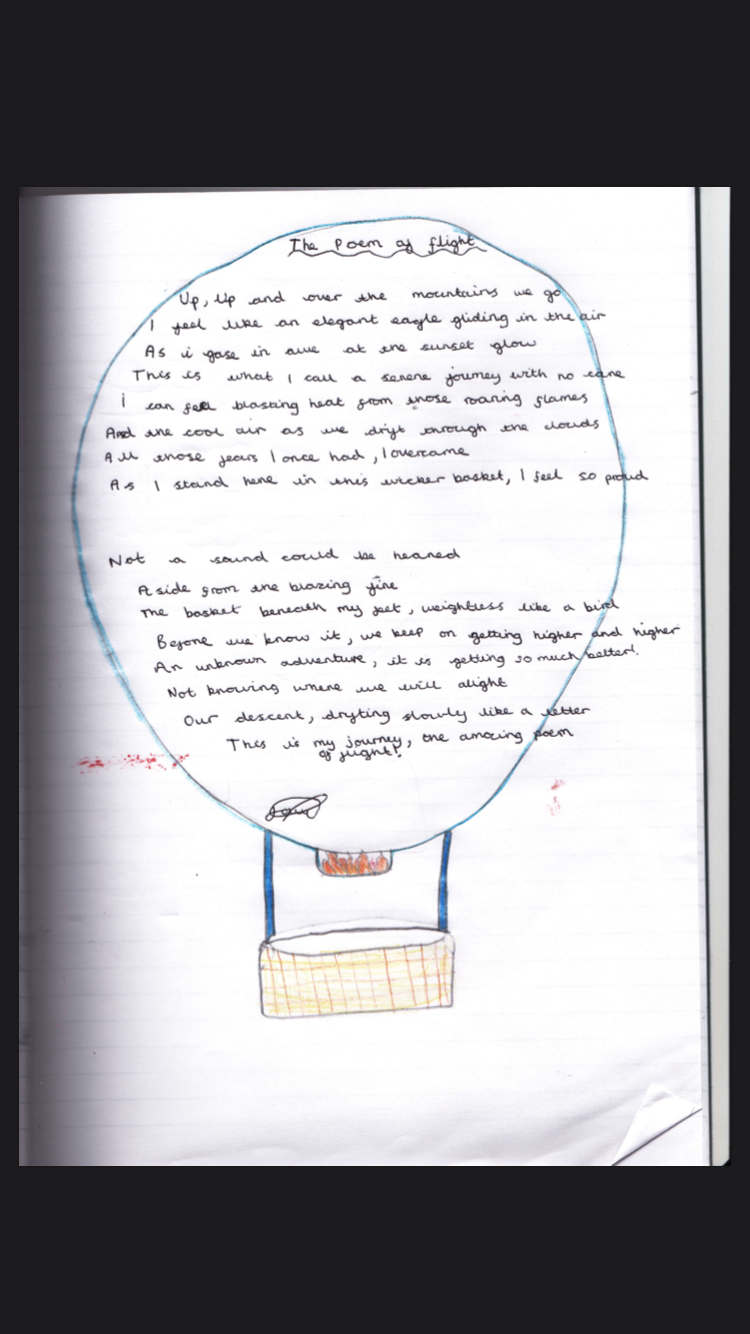 The Poem of flight
Up, Up and over the mountains we go
I feel like an elegant eagle gliding in the air
As i gase in awe at the sunset glow
This is what I call a serene journey with no care
i can feel blasting heat from those roaring flames
And the cool air as we dryt through the clouds
All those fears I once had, I overcame
As I stand here in this wicker basket, I feel so proud
Not a sound could be heared
Aside from the blazing fire
The basket beneath my feet, weightless like a bird
Before we know it, we keep on getting higher and higher
An unknown adventure, it is getting so much better!
Not knowing where we will alight
Our descent, dryting slowly like a letter
This is my journey, the amazing poem
of flight!